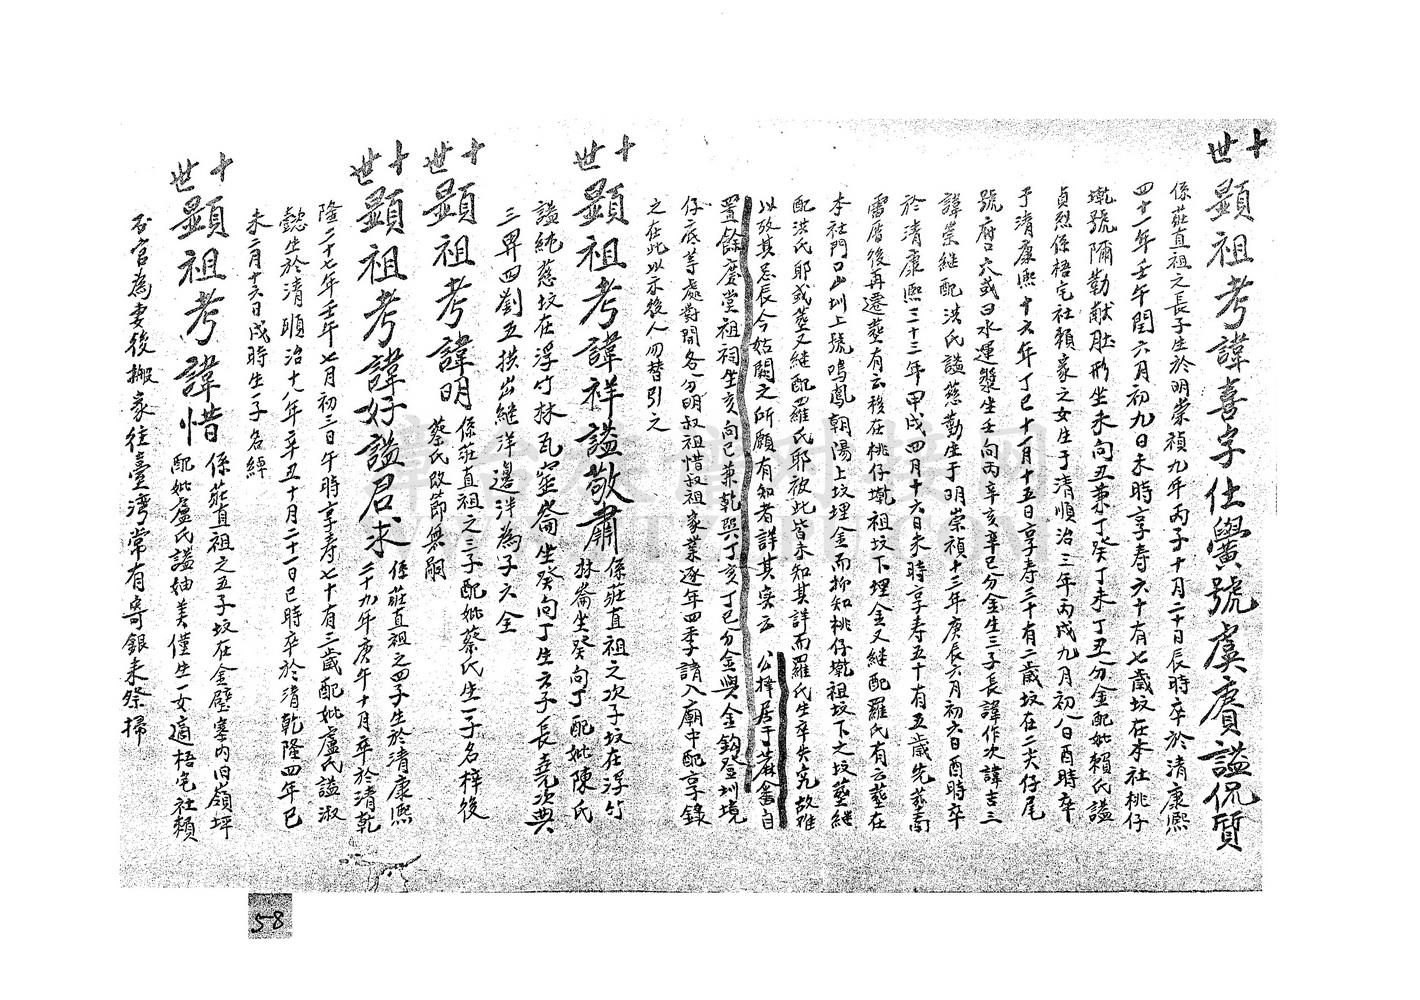 十世顯祖考諱喜字仕黌號虞賡謚侃質
係莊直祖之長子生於明崇禎九年丙子十月二十日辰時卒於清康熙
四十一年壬午閏六月初九日未時享寿六十有七歲坟在本社桃仔
墘號隬勸献肚形坐未向丑兼丁癸丁未丁丑分金配妣賴氏謚
貞烈係梧宅社賴家之女生于清順治三年丙戌九月初八日酉時卒
于清康熙十六年丁巳十一月十五日享寿三十有二歲坟在二尖仔尾
號府口穴或曰水運盤坐壬向丙辛亥辛巳分金生三子長諱作次諱吉三
諱崇継配洪氏謚慈勤生于明崇禎十三年庚辰六月初六日酉時卒
於清康熙三十三年甲戌四月十六日未時享寿五十有五歲先葬高
雷厝後再遷葬有云移在桃仔墘祖坟下埋金又継配羅氏有云葬在
本社門口山圳上號鳴鳳朝陽上坟埋金而抑知桃仔墘祖坟下之坟葬継
配洪氏耶或葬又継配羅氏耶彼此皆未知其詳而羅氏生卒失究故难
以攷其忌辰今姑闕之所願有知者詳其寔云 公擇居于蔴畬自
置餘慶堂祖祠坐亥向巳兼乾巽丁亥丁巳分金與金鈎登圳境
仔底等處對間各分明叔祖惜叔祖家業逐年四季請入廟中配享錄
之在此以示後人勿替引之
十世顯祖考諱祥謚敬肅係莊直祖之次子坟在浮竹
林崙坐癸向丁配妣陳氏
謚純慈坟在浮竹林瓦窑崙坐癸向丁生六子長堯次典
三舁四劉五拱出継洋邊泮為子六全
十世顯祖考諱明係莊直祖之三子配妣蔡氏生一子名梓後
蔡氏改節無嗣
十世顯祖考諱好謚君求係莊直祖之四子生於清康熙
二十九年庚午十月卒於清乾
隆二十七年壬午七月初三日午時享寿七十有三歲配妣盧氏謚淑
懿生於清順治十八年辛丑十月二十一日巳時卒於清乾隆四年己
未二月十六日戌時生一子名綽
十世顯祖考諱惜係莊直祖之五子坟在金壁寨內旧嶺坪
配妣盧氏謚妯美僅生一女適梧宅社賴
否官為妻後搬家往臺灣常有寄銀来祭掃
58